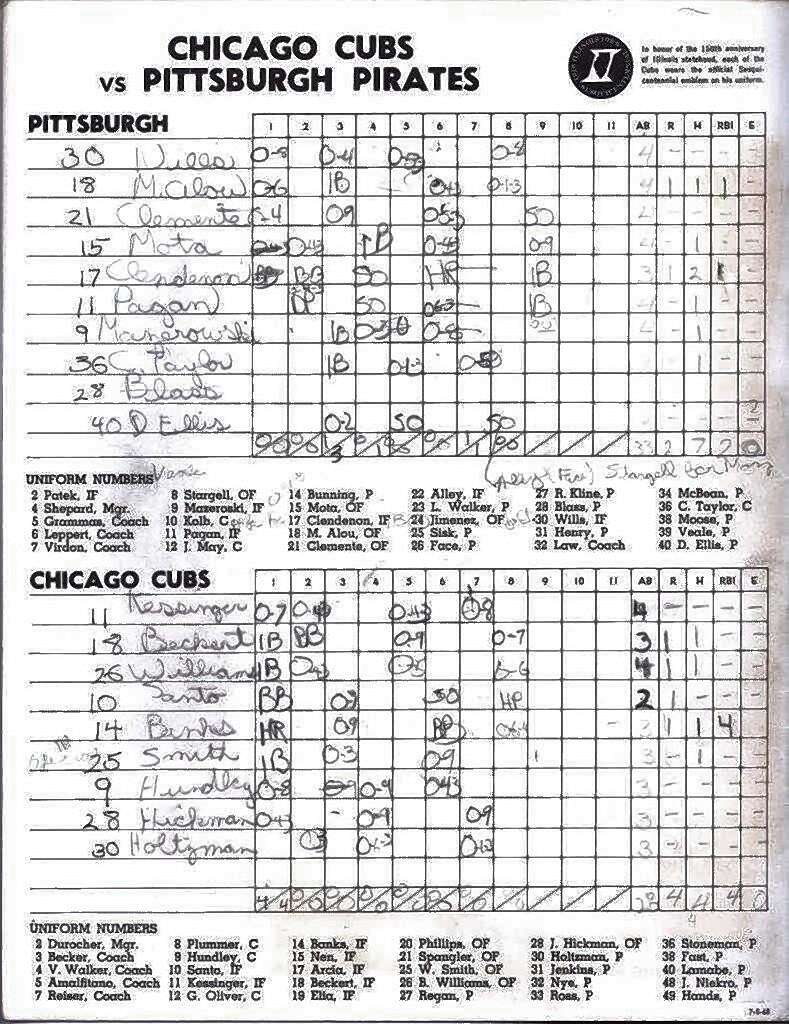 CHICAGO CUBS
VS PITTSBURGH PIRATES
In honor of the 150th anniversary
of Illinois statehood, each of the
Cubs wears the official Sesqui-
centennial emblem on his uniform.
PITTSBURGH 1 2 3 4 5 6 7 8 9 10 11 AB R H RBI E
30 Wills 0-8 0-4 0-53 0-8 4 - - -
18 M. Alou 0-6 1B 0-43 0-1-3 4 1 1 1
21 Clemente 0-4 09 0-53 SO 4 - - -
15 Mota 0-43 1B 0-43 0-9 4 - 1 -
17 Clendenon BB BB SO HR 1B 3 1 2 1
11 Pagan DP SO 063 1B 4 - 1 -
9 Mazerowski 1B 0-3 0-8 4 - 1 -
36 C. Taylor 1B 0-1-3 - - 1 -
28 Blass - - - -
40 D Ellis 0-2 SO SO - - - -
33 2 7 2 0
Stargell for Mota
UNIFORM NUMBERS
2 Patek, IF 8 Stargell, OF 14 Bunning, P 22 Alley, IF 27 R. Kline, P 34 McBean, P
4 Shepard, Mgr. 9 Mazeroski, IF 15 Mota, OF 23 L. Walker, P 28 Blass, P 36 C. Taylor, C
5 Grammas, Coach 10 Kolb, C 17 Clendenon, IF 24 Jimenez, OF 30 Wills, IF 38 Moose, P
6 Leppert, Coach 11 Pagan, IF 18 M. Alou, OF 25 Sisk, P 31 Henry, P 39 Veale, P
7 Virdon, Coach 12 J. May, C 21 Clemente, OF 26 Face, P 32 Law, Coach 40 D. Ellis, P
CHICAGO CUBS 1 2 3 4 5 6 7 8 9 10 11 AB R H RBI E
11 Kessinger 0-7 0-43 0-43 0-8 4 - - - -
18 Beckert 1B BB 0-9 0-7 3 1 1 - -
26 William 1B 0-43 0-5 6-6 4 1 1 - -
10 Santo BB 0-9 SO HP 2 1 - - -
14 Banks HR 09 BB 3 1 1 4 -
25 Smith 1B 0-3 09 3 - 1 - -
9 Hundley 0-8 0-9 043 3 - - - -
28 Hickman 0-43 0-9 09 3 - - - -
30 Holtzman 03 0-1-3 3 - - - -
28 4 4 4 0
UNIFORM NUMBERS
2 Durocher, Mgr. 8 Plummer, C 14 Banks, IF 20 Phillips, OF 28 J. Hickman, OF 36 Stoneman, P
3 Becker, Coach 9 Hundley, C 15 Nen, IF 21 Spangler, OF 30 Holtzman, P 38 Fast, P
4 V. Walker, Coach 10 Santo, IF 17 Arcia, IF 25 W. Smith, OF 31 Jenkins, P 40 Lamabe, P
5 Amalfitano, Coach 11 Kessinger, IF 18 Beckert, IF 26 B. Williams, OF 32 Nye, P 48 J. Niekro, P
7 Reiser, Coach 12 G. Oliver, C 19 Elia, IF 27 Regan, P 33 Ross, P 49 Hands, P